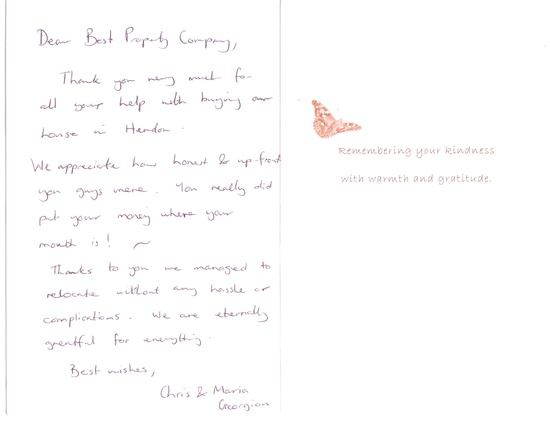 Dear Best Property Company,
Thank you very much for
all your help with buying our
house in Hendon.
We appreciate how honest & up-front
you guys were. You really did
put your money where your
mouth is!
Thanks to you we managed to
relocate without any hassle or
complications. We are eternally
greatful for everything.
Best wishes,
Chris & Maria
Georgion
Remembering your kindness
with warmth and gratitude.